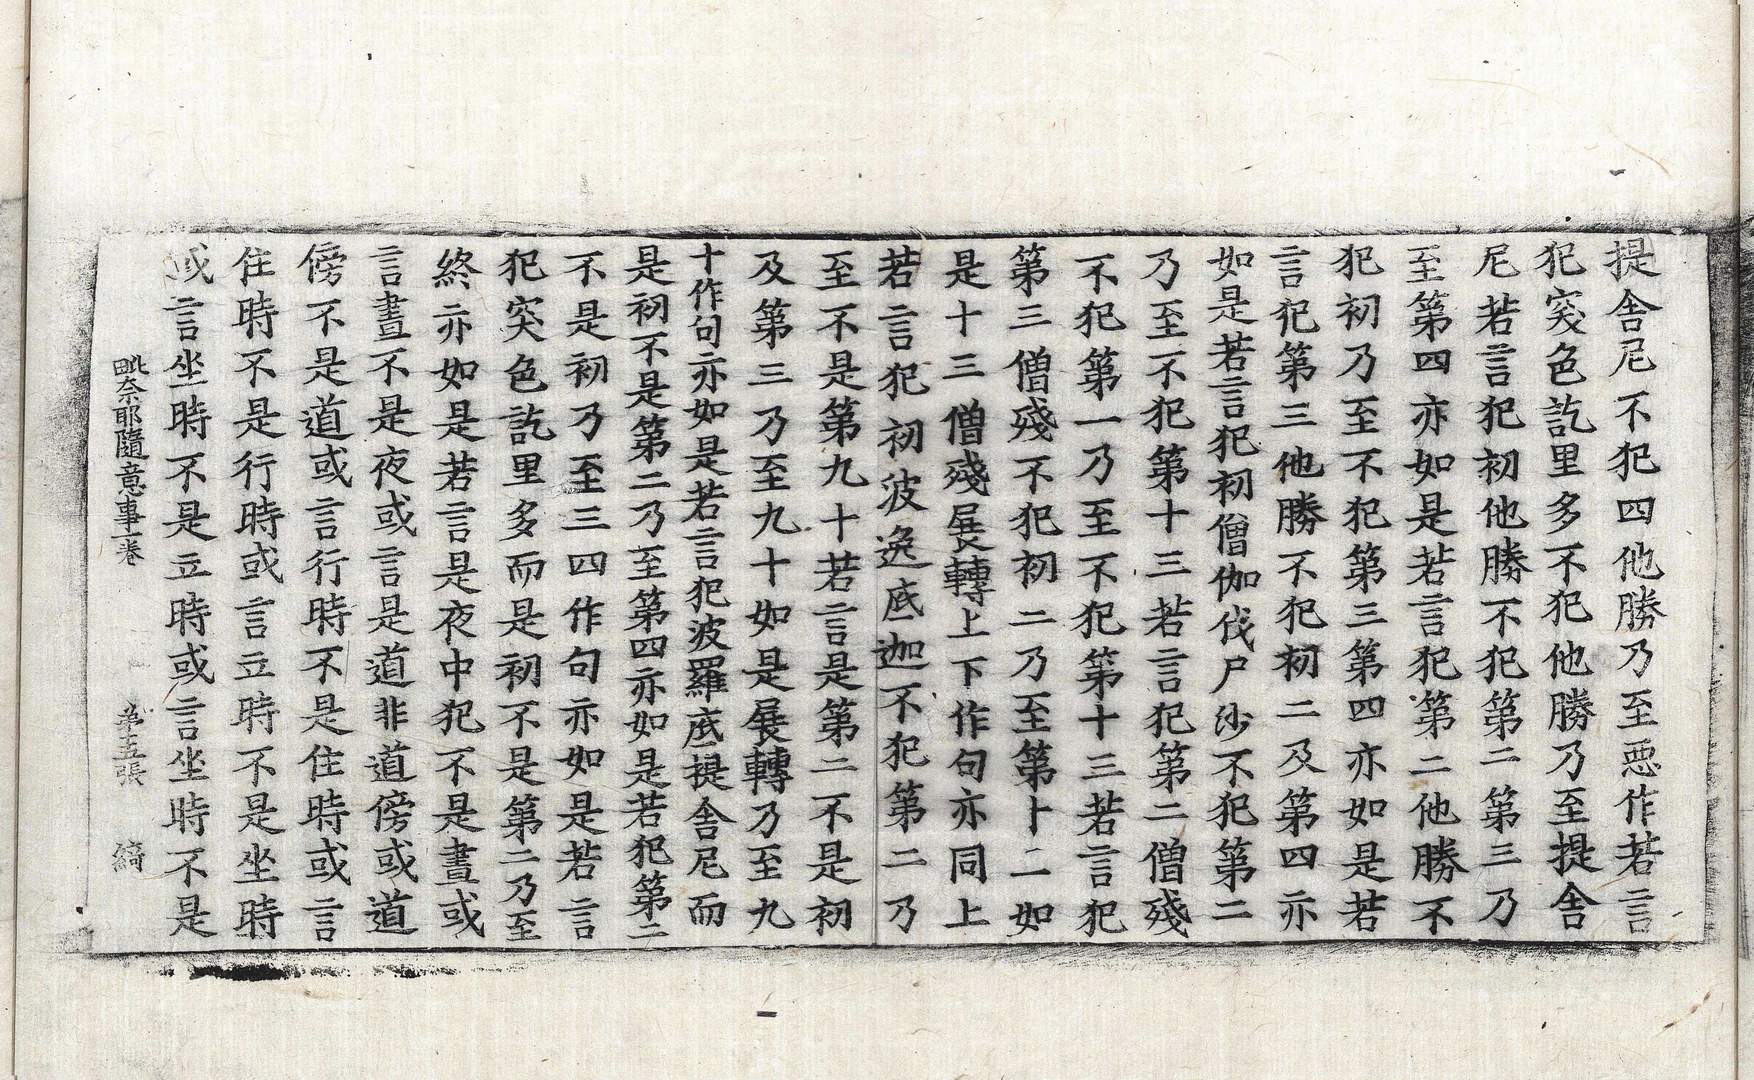 提舍尼不犯四他勝乃至惡作若言
犯突色訖里多不犯他勝乃至提舍
尼若言犯初他勝不犯第二第三乃
至第四亦如是若言犯第二他勝不
犯初乃至不犯第三第四亦如是若
言犯第三他勝不犯初二及第四亦
如是若言犯初僧伽伐尸沙不犯第二
乃至不犯第十三若言犯第二僧殘
不犯第一乃至不犯第十三若言犯
第三僧殘不犯初二乃至第十二如
是十三僧殘展轉上下作句亦同上
若言犯初波逸底迦不犯第二乃
至不是第九十若言是第二不是初
及第三乃至九十如是展轉乃至九
十作句亦如是若言犯波羅底提舍尼而
是初不是第二乃至第四亦如是若犯第二
不是初乃至三四作句亦如是若言
犯突色訖里多而是初不是第二乃至
終亦如是若言是夜中犯不是晝或
言晝不是夜或言是道非道傍或道
傍不是道或言行時不是住時或言
住時不是行時或言立時不是坐時
或言坐時不是立時或言坐時不是
毗奈耶隨意事一卷 第五張 綺